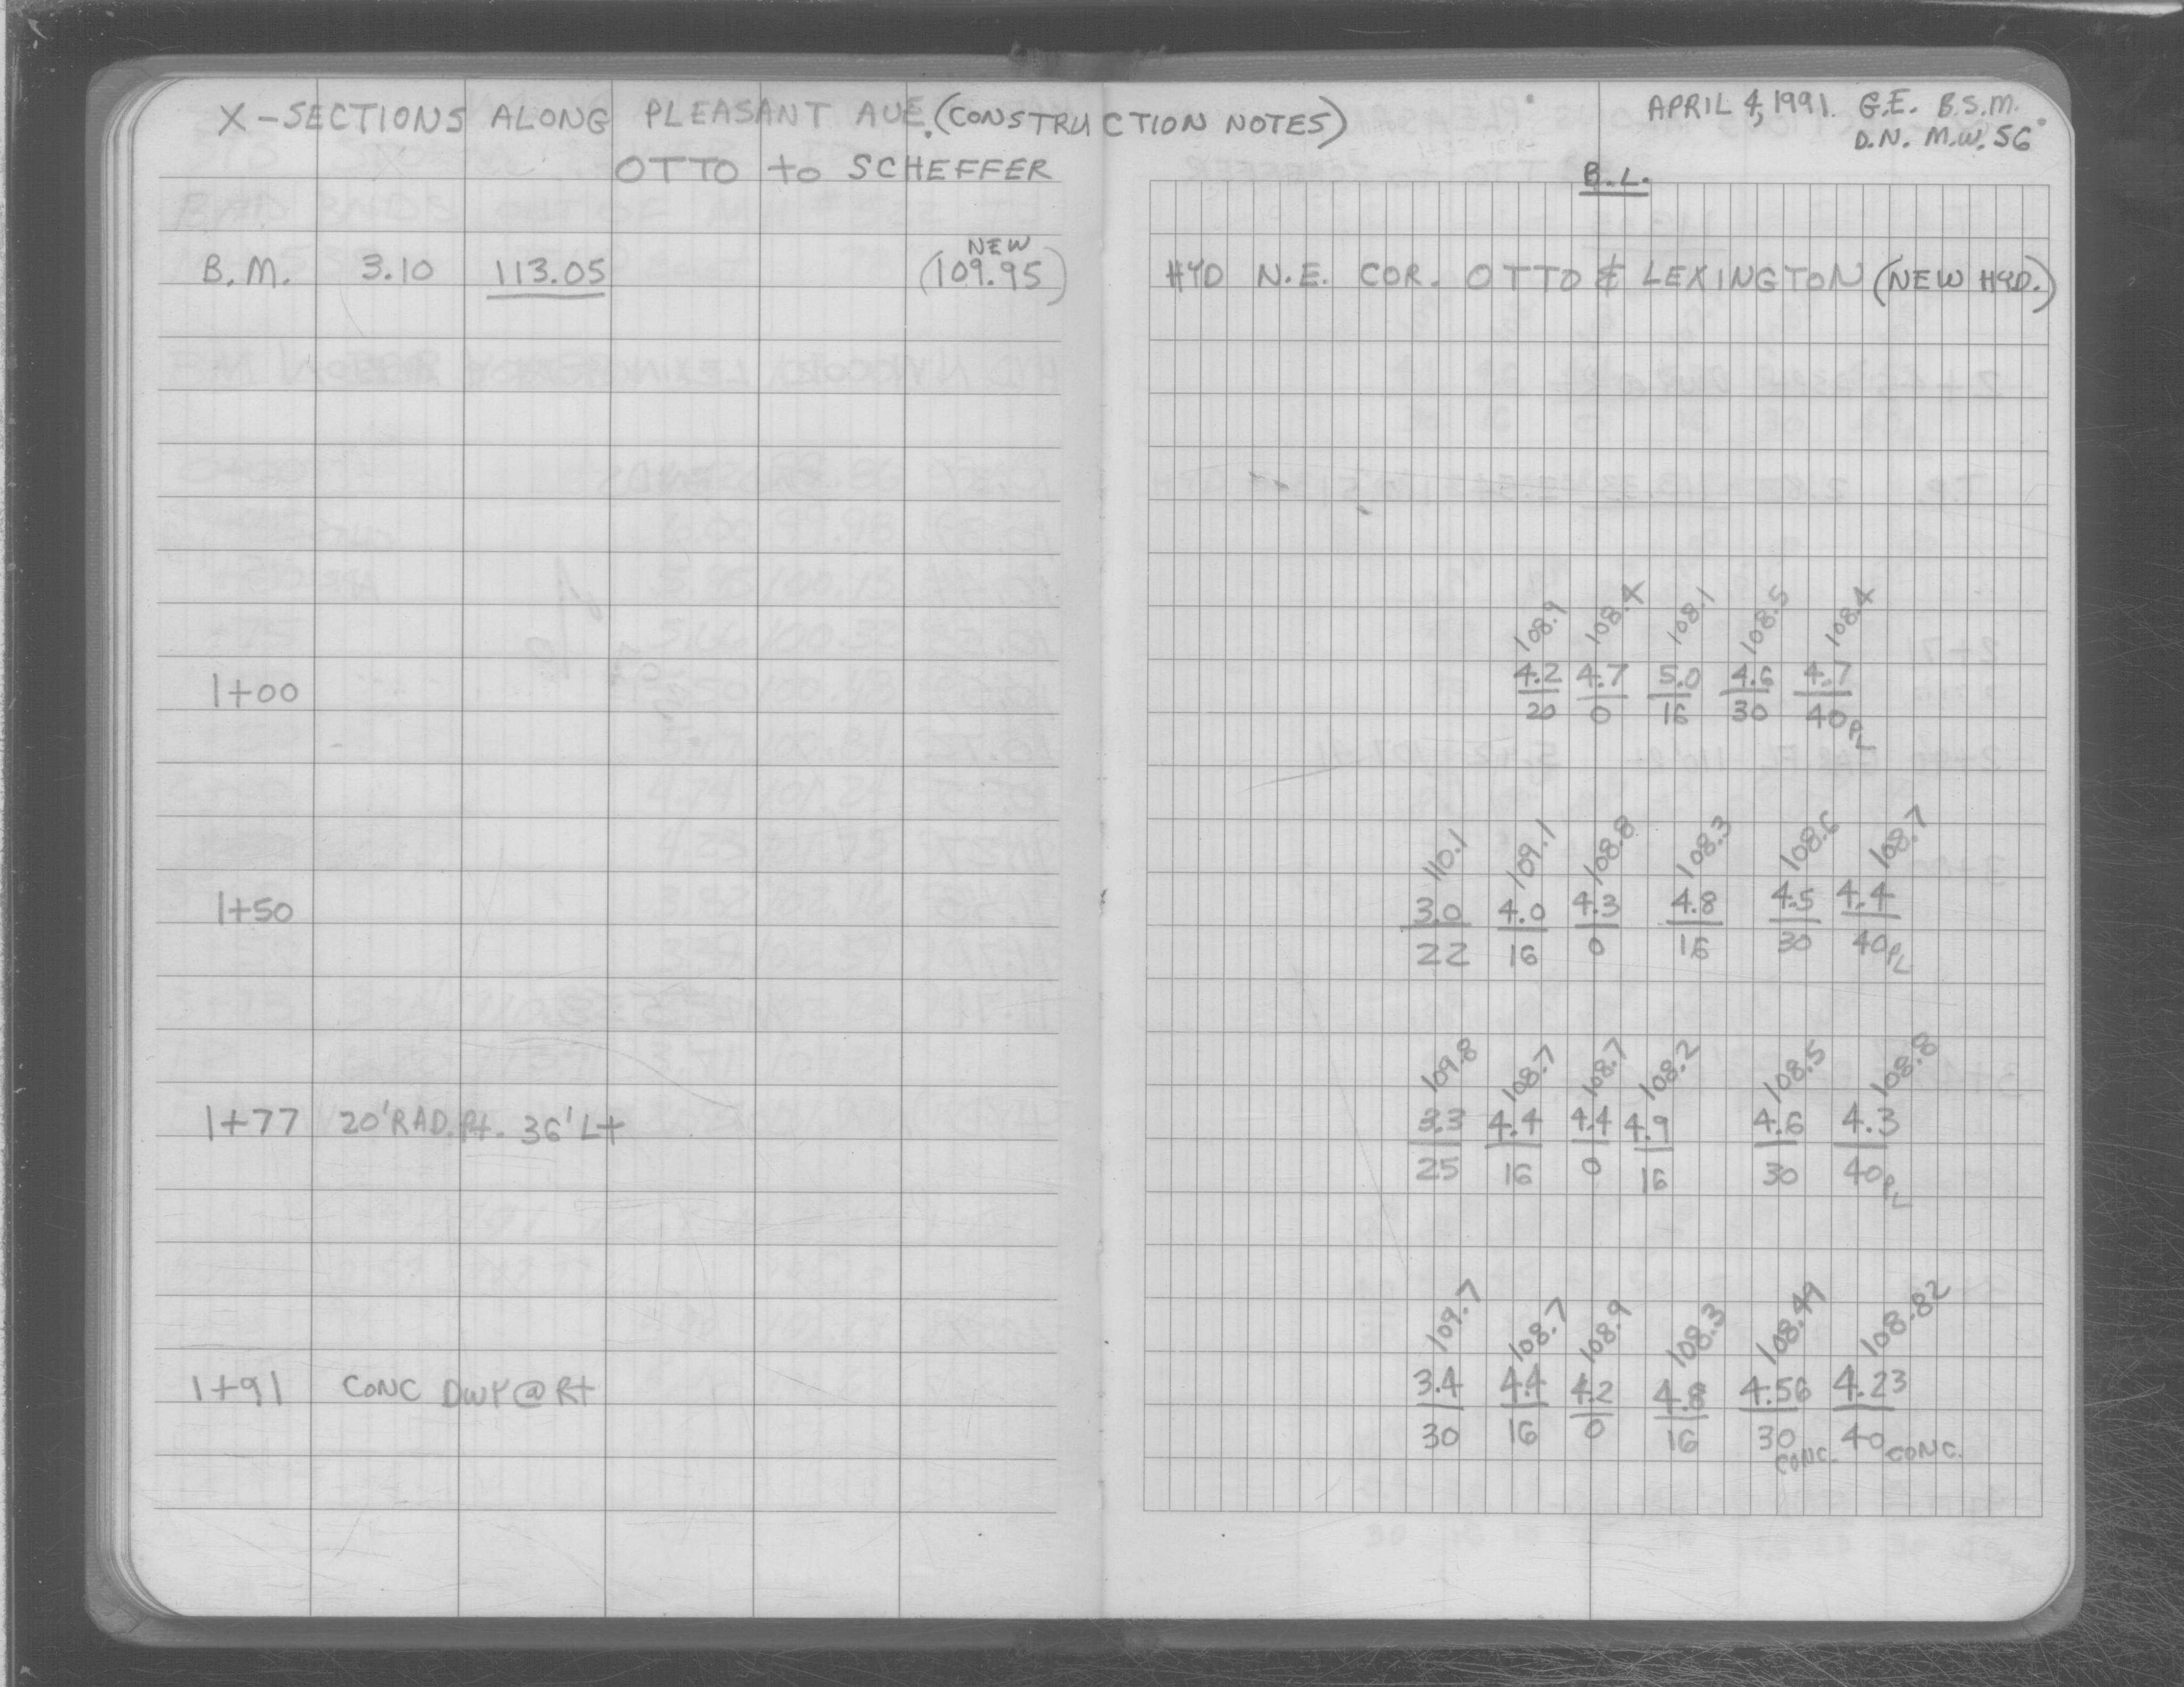 X-SECTIONS ALONG PLEASANT AVE. (CONSTRUCTION NOTES)
OTTO to SCHEFFER
APRIL 4, 1991. G.E. B.S.M.
D.N. M.W. 56°
B.L.
NEW
B.M. 3.10 113.05 (109.95) HYD N.E. COR. OTTO & LEXINGTON (NEW HYD.)
108.9 108.4 108.1 108.5 108.4
1+00 4.2 4.7 5.0 4.6 4.7
20 0 16 30 40 PL
110.1 109.1 108.8 108.3 108.6 108.7
1+50 3.0 4.0 4.3 4.8 4.5 4.4
22 16 0 16 30 40 PL
109.8 108.7 108.7 108.2 108.5 108.8
1+77 20' RAD. Pt. 36' Lt 3.3 4.4 4.4 4.9 4.6 4.3
25 16 0 16 30 40 PL
109.7 108.7 108.9 108.3 108.49 108.82
1+91 CONC DWY @ Rt 3.4 4.4 4.2 4.8 4.56 4.23
30 16 0 16 30 CONC. 40 CONC.